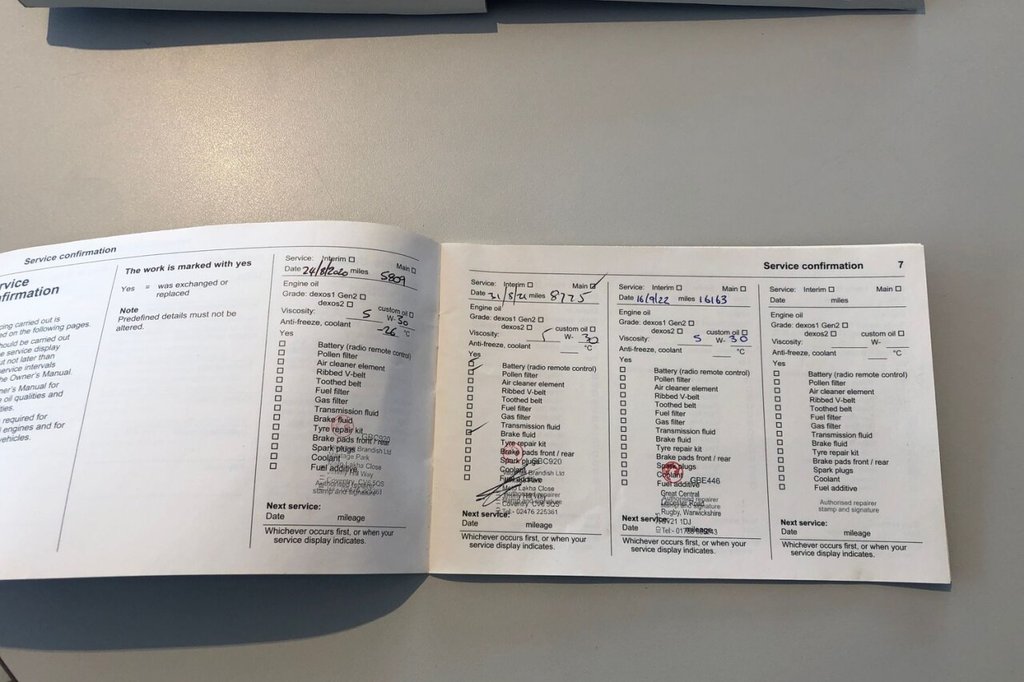 Service confirmation
rvice
nfirmation
cing carried out is
ed on the following pages.
hould be carried out
e service display
ut not later than
service intervals
the Owner's Manual.
ner's Manual for
e oil qualities and
ties.
required for
engines and for
vehicles.
The work is marked with yes
Yes = was exchanged or
replaced
Note
Predefined details must not be
altered.
Service: Interim
Main
Date 24/8/2020 miles 5809
Engine oil
Grade: dexos1 Gen2
dexos2
Viscosity: 5 W- 30
Anti-freeze, coolant -26 °C
Yes
Battery (radio remote control)
Pollen filter
Air cleaner element
Ribbed V-belt
Toothed belt
Fuel filter
Gas filter
Transmission fluid
Brake fluid
Tyre repair kit
Brake pads front / rear
Spark plugs
Coolant
Fuel additive
GBC920
Brandish Ltd
Lakha Close
Way
Coventry CV6 5QS
Authorised repairer
stamp and signature
Next service:
Date mileage
Whichever occurs first, or when your
service display indicates.
Service confirmation 7
Service: Interim Main
Date 21/8/21 miles 8775
Engine oil
Grade: dexos1 Gen2
dexos2 custom oil
Viscosity: 5 W- 30
Anti-freeze, coolant °C
Yes
Battery (radio remote control)
Pollen filter
Air cleaner element
Ribbed V-belt
Toothed belt
Fuel filter
Gas filter
Transmission fluid
Brake fluid
Tyre repair kit
Brake pads front / rear
Spark plugs
GBC920
Coolant
Brandish Ltd
Fuel additive
Lakha Close
Authorised repairer
stamp and signature
Coventry CV6 5QS
Tel:- 02476 225361
Next service:
Date mileage
Whichever occurs first, or when your
service display indicates.
Service: Interim Main
Date 16/9/22 miles 16163
Engine oil
Grade: dexos1 Gen2
dexos2 custom oil
Viscosity: 5 W- 30
Anti-freeze, coolant °C
Yes
Battery (radio remote control)
Pollen filter
Air cleaner element
Ribbed V-belt
Toothed belt
Fuel filter
Gas filter
Transmission fluid
Brake fluid
Tyre repair kit
Brake pads front / rear
Spark plugs
Coolant
GBE446
Fuel additive
Great Central
Authorised repairer
Leicester Road
stamp and signature
Rugby, Warwickshire
1DJ
Next service:
Date mileage
Whichever occurs first, or when your
service display indicates.
Service: Interim Main
Date miles
Engine oil
Grade: dexos1 Gen2
dexos2 custom oil
Viscosity: W-
Anti-freeze, coolant °C
Yes
Battery (radio remote control)
Pollen filter
Air cleaner element
Ribbed V-belt
Toothed belt
Fuel filter
Gas filter
Transmission fluid
Brake fluid
Tyre repair kit
Brake pads front / rear
Spark plugs
Coolant
Fuel additive
Authorised repairer
stamp and signature
Next service:
Date mileage
Whichever occurs first, or when your
service display indicates.